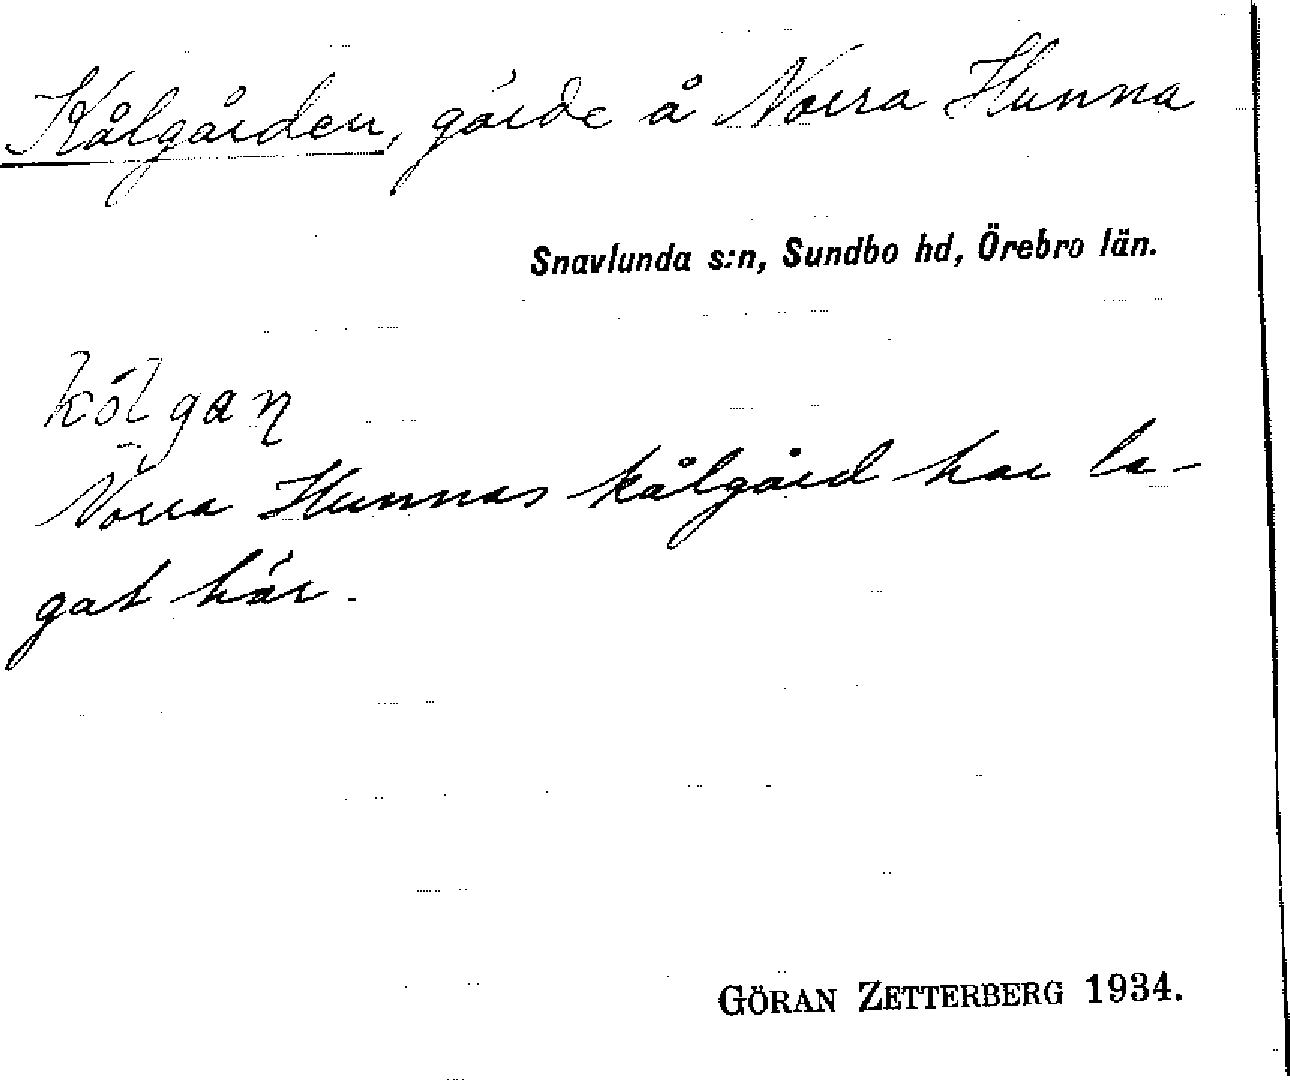 Kålgården, gärde å Norra Hunna
Snavlunda s:n, Sundbo hd, Örebro län.
kólgan
Norra Hunnas kålgård har le-
gat här.
GÖRAN ZETTERBERG 1934.